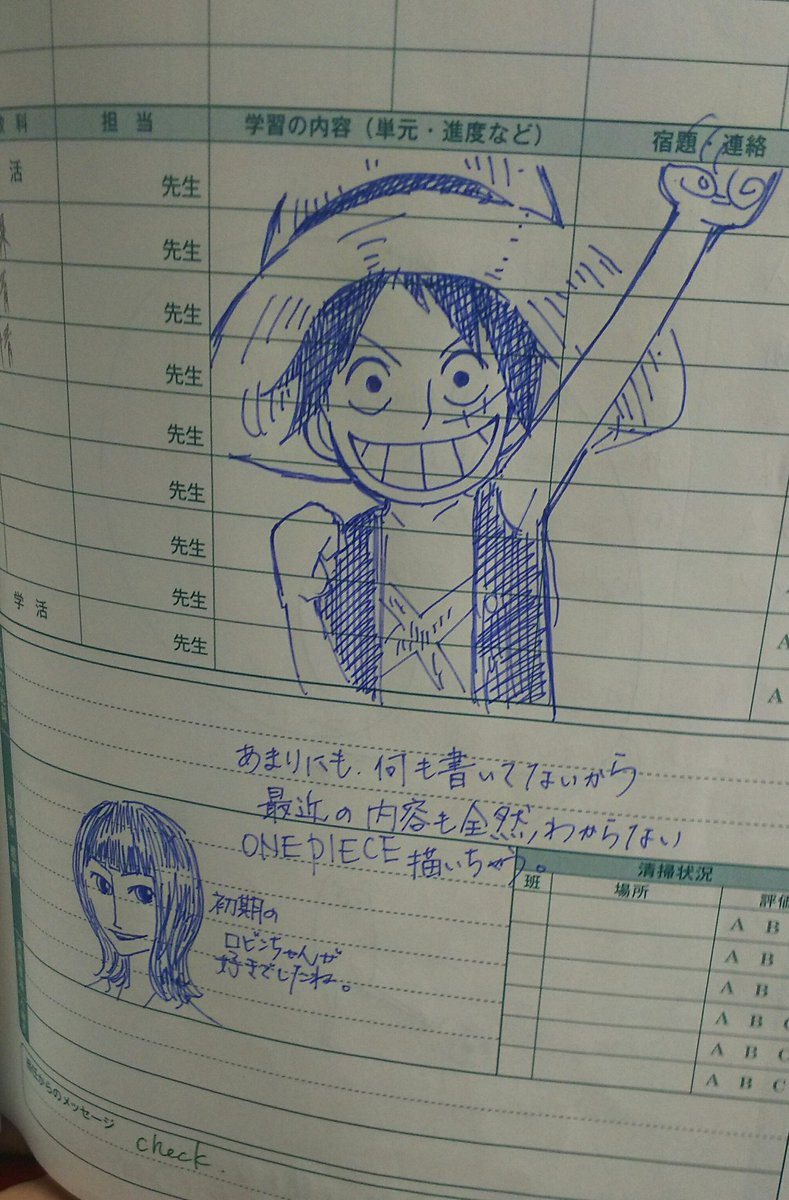 担当 学習の内容(単元・進度など) 宿題・連絡
活 先生
先生
先生
先生
先生
先生
先生
学活 先生
先生
A
A
あまりにも、何も書いてないから
最近の内容も全然、わからない
ONE PIECE 描いちゃう。
初期の
ロビンちゃんが
好きでしたね。
清掃状況
班 場所 評価
A B
A B
A B
A B C
A B C
A B C
からのメッセージ
check.